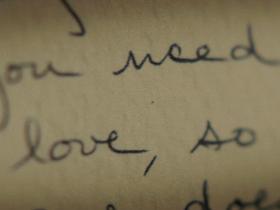 you need
love, so
does